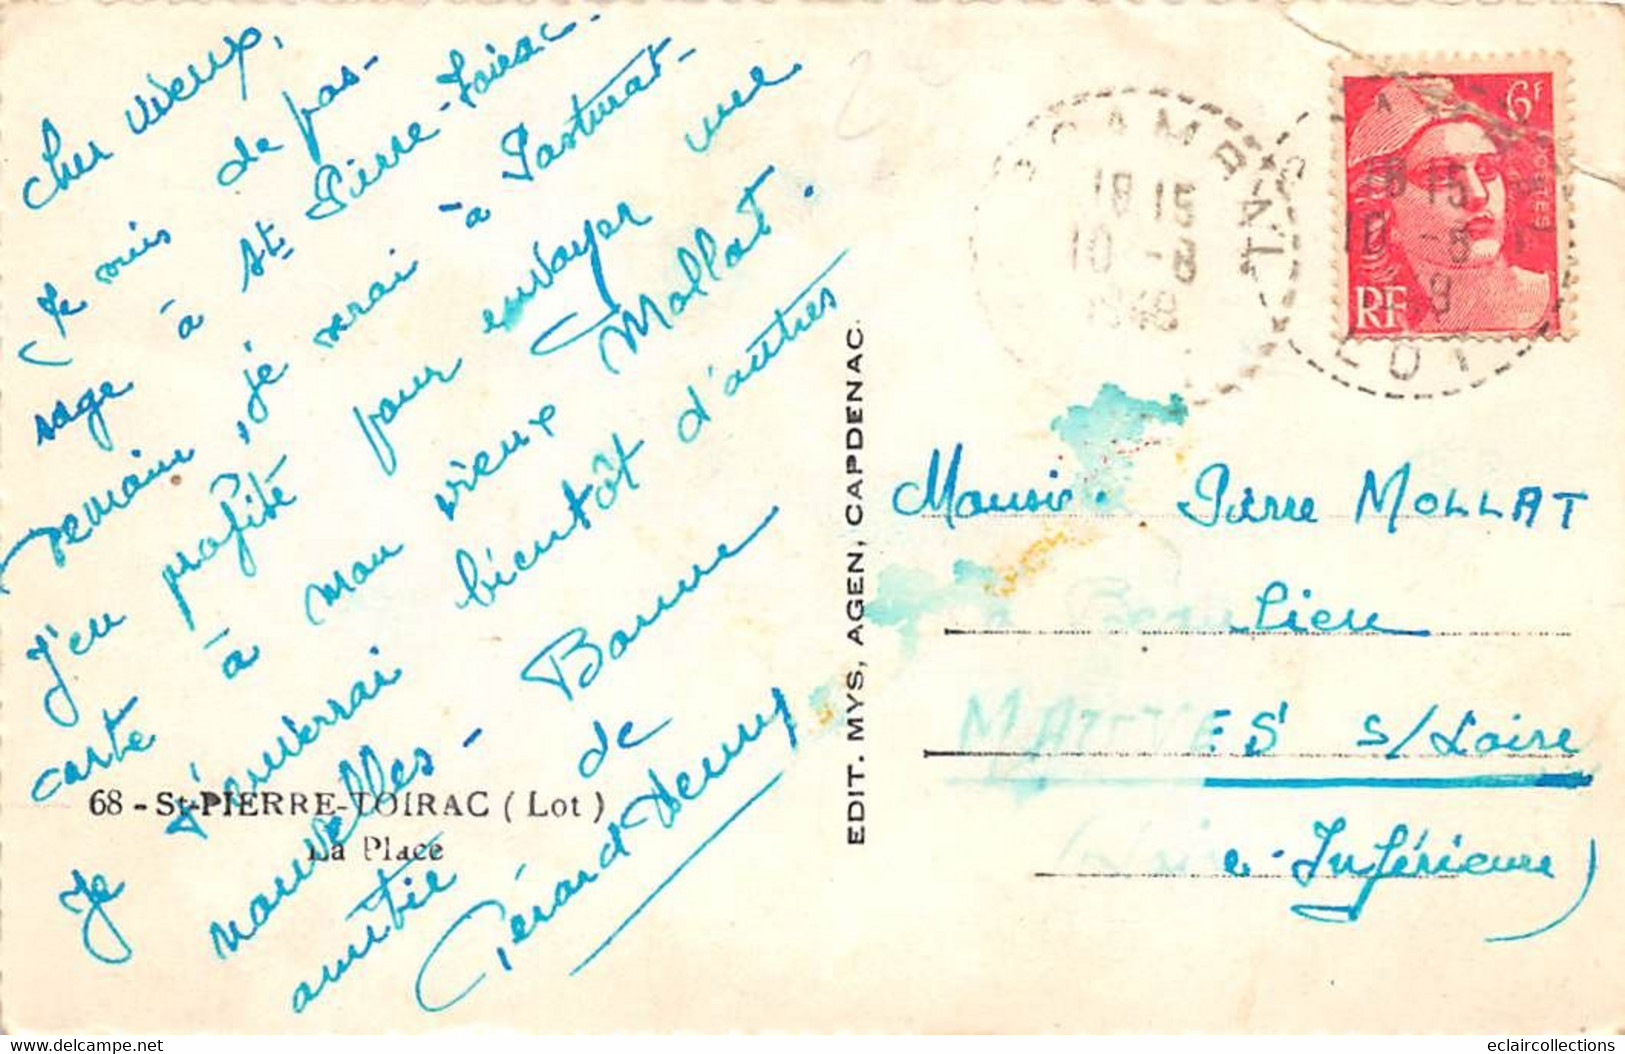 Cher vieux,
Je suis de pas-
sage à St. Pierre-Toirac.
Demain, je serai à
J'en profite pour envoyer une
carte à mon vieux Mollat.
Je t'enverrai bientôt d'autres
nouvelles - Bonne
amitié de
Gérard
68 - St-PIERRE-TOIRAC (Lot)
La Place
EDIT. MYS, AGEN, CAPDENAC.
18 15
10 -8
1948
6F
POSTES
RF
18 15
10 -8
LOT
Pierre MOLLAT
Beau lieu
MAUVES s/Loire
(Loire-Inférieure)
eclaircollections - www.delcampe.net